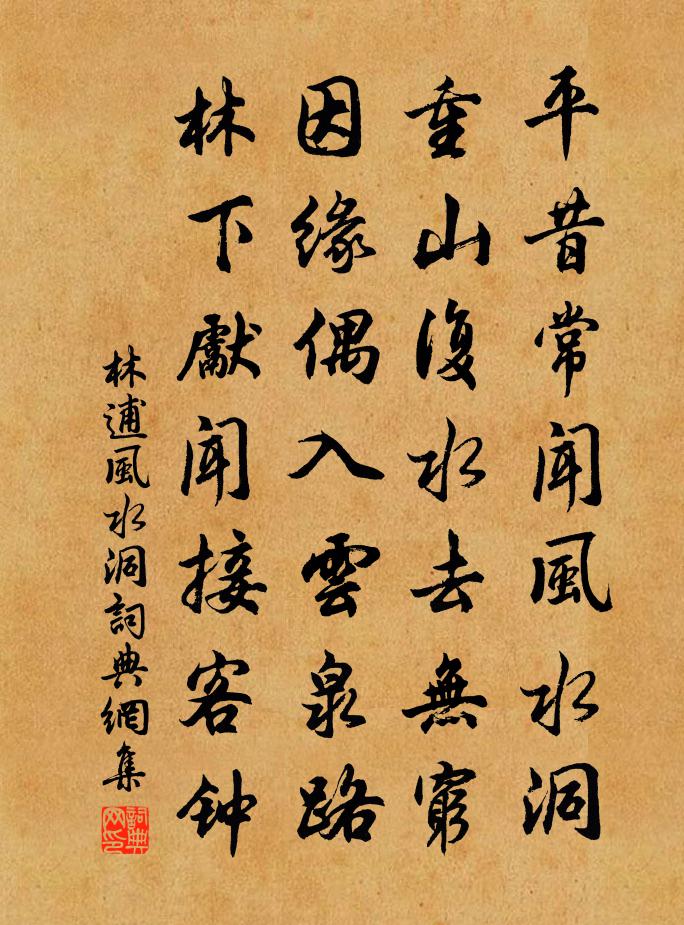 平昔常聞風水洞
重山復水去無窮
因緣偶入雲泉路
林下獻聞接客钟
林逋風水洞詞典網集
詞典网印